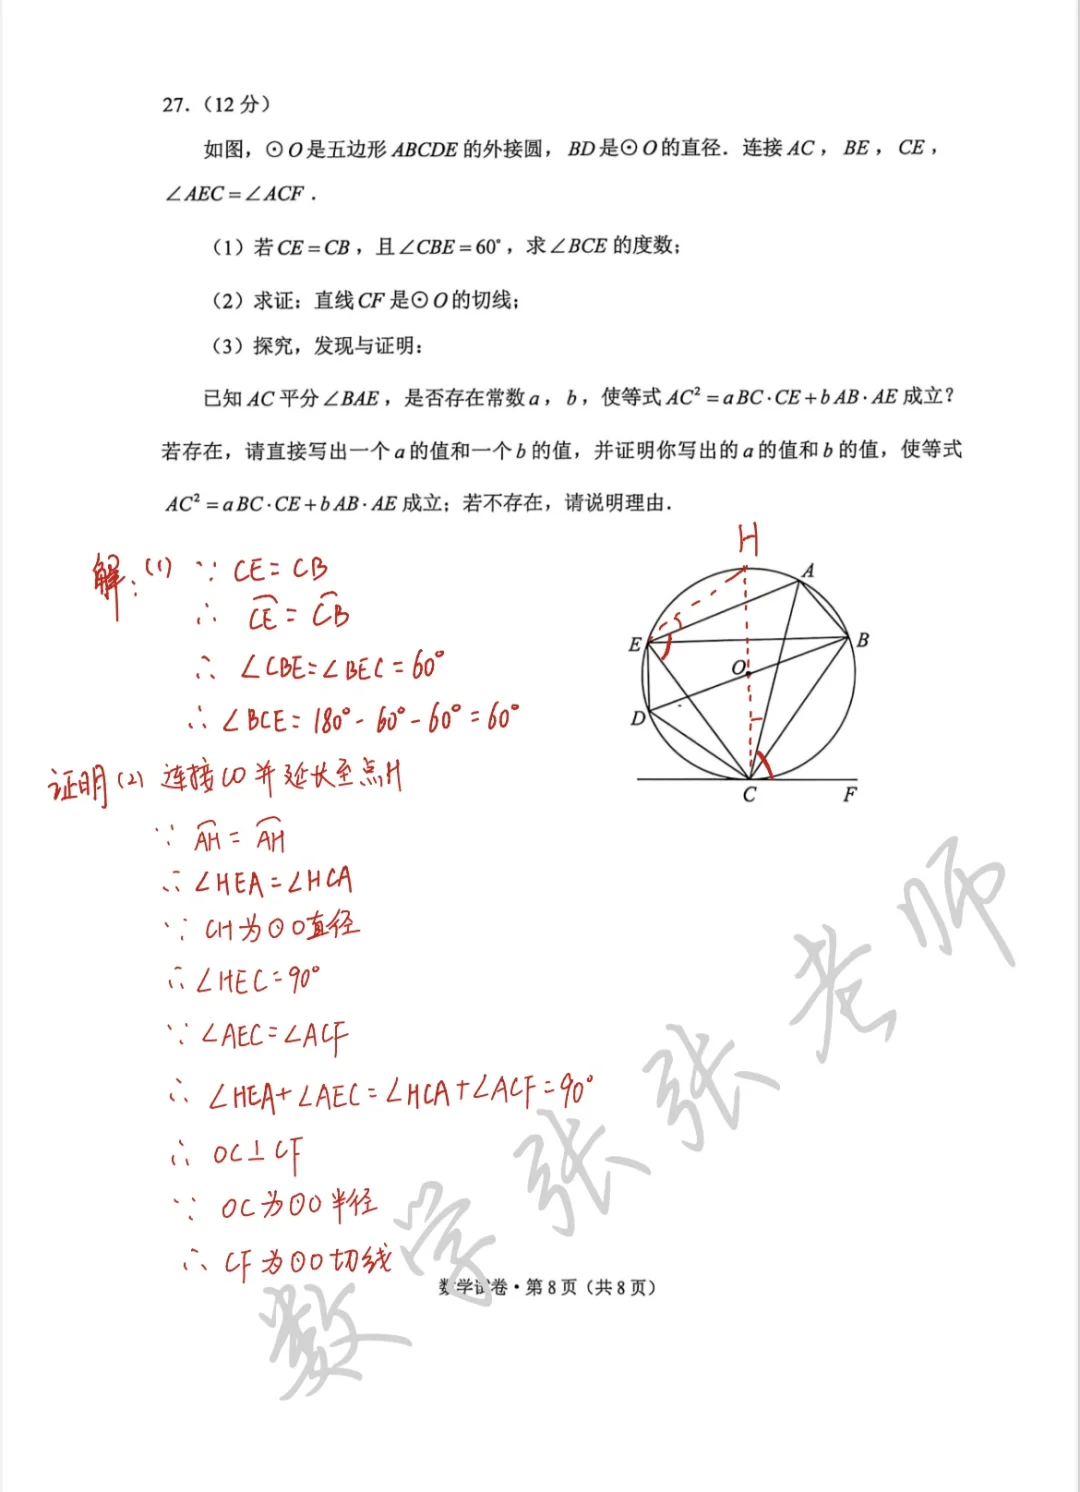 27.（12 分）
如图，⊙O是五边形ABCDE的外接圆，BD是⊙O的直径．连接AC，BE，CE，
∠AEC=∠ACF．
（1）若CE=CB，且∠CBE=60°，求∠BCE的度数；
（2）求证：直线CF是⊙O的切线；
（3）探究，发现与证明：
已知AC平分∠BAE，是否存在常数a，b，使等式AC²=aBC·CE+bAB·AE成立？
若存在，请直接写出一个a的值和一个b的值，并证明你写出的a的值和b的值，使等式
AC²=aBC·CE+bAB·AE成立；若不存在，请说明理由．
H
A
E
B
O
D
C
F
解：(1) ∵ CE=CB
∴ C͡E=C͡B
∴ ∠CBE=∠BEC=60°
∴ ∠BCE=180°-60°-60°=60°
证明(2) 连接CO并延长至点H
∵ A͡H=A͡H
∴ ∠HEA=∠HCA
∵ CH为⊙O直径
∴ ∠HEC=90°
∵ ∠AEC=∠ACF
∴ ∠HEA+∠AEC=∠HCA+∠ACF=90°
∴ OC⊥CF
∵ OC为⊙O半径
∴ CF为⊙O切线
数学试卷·第8页（共8页）
数学张张老师